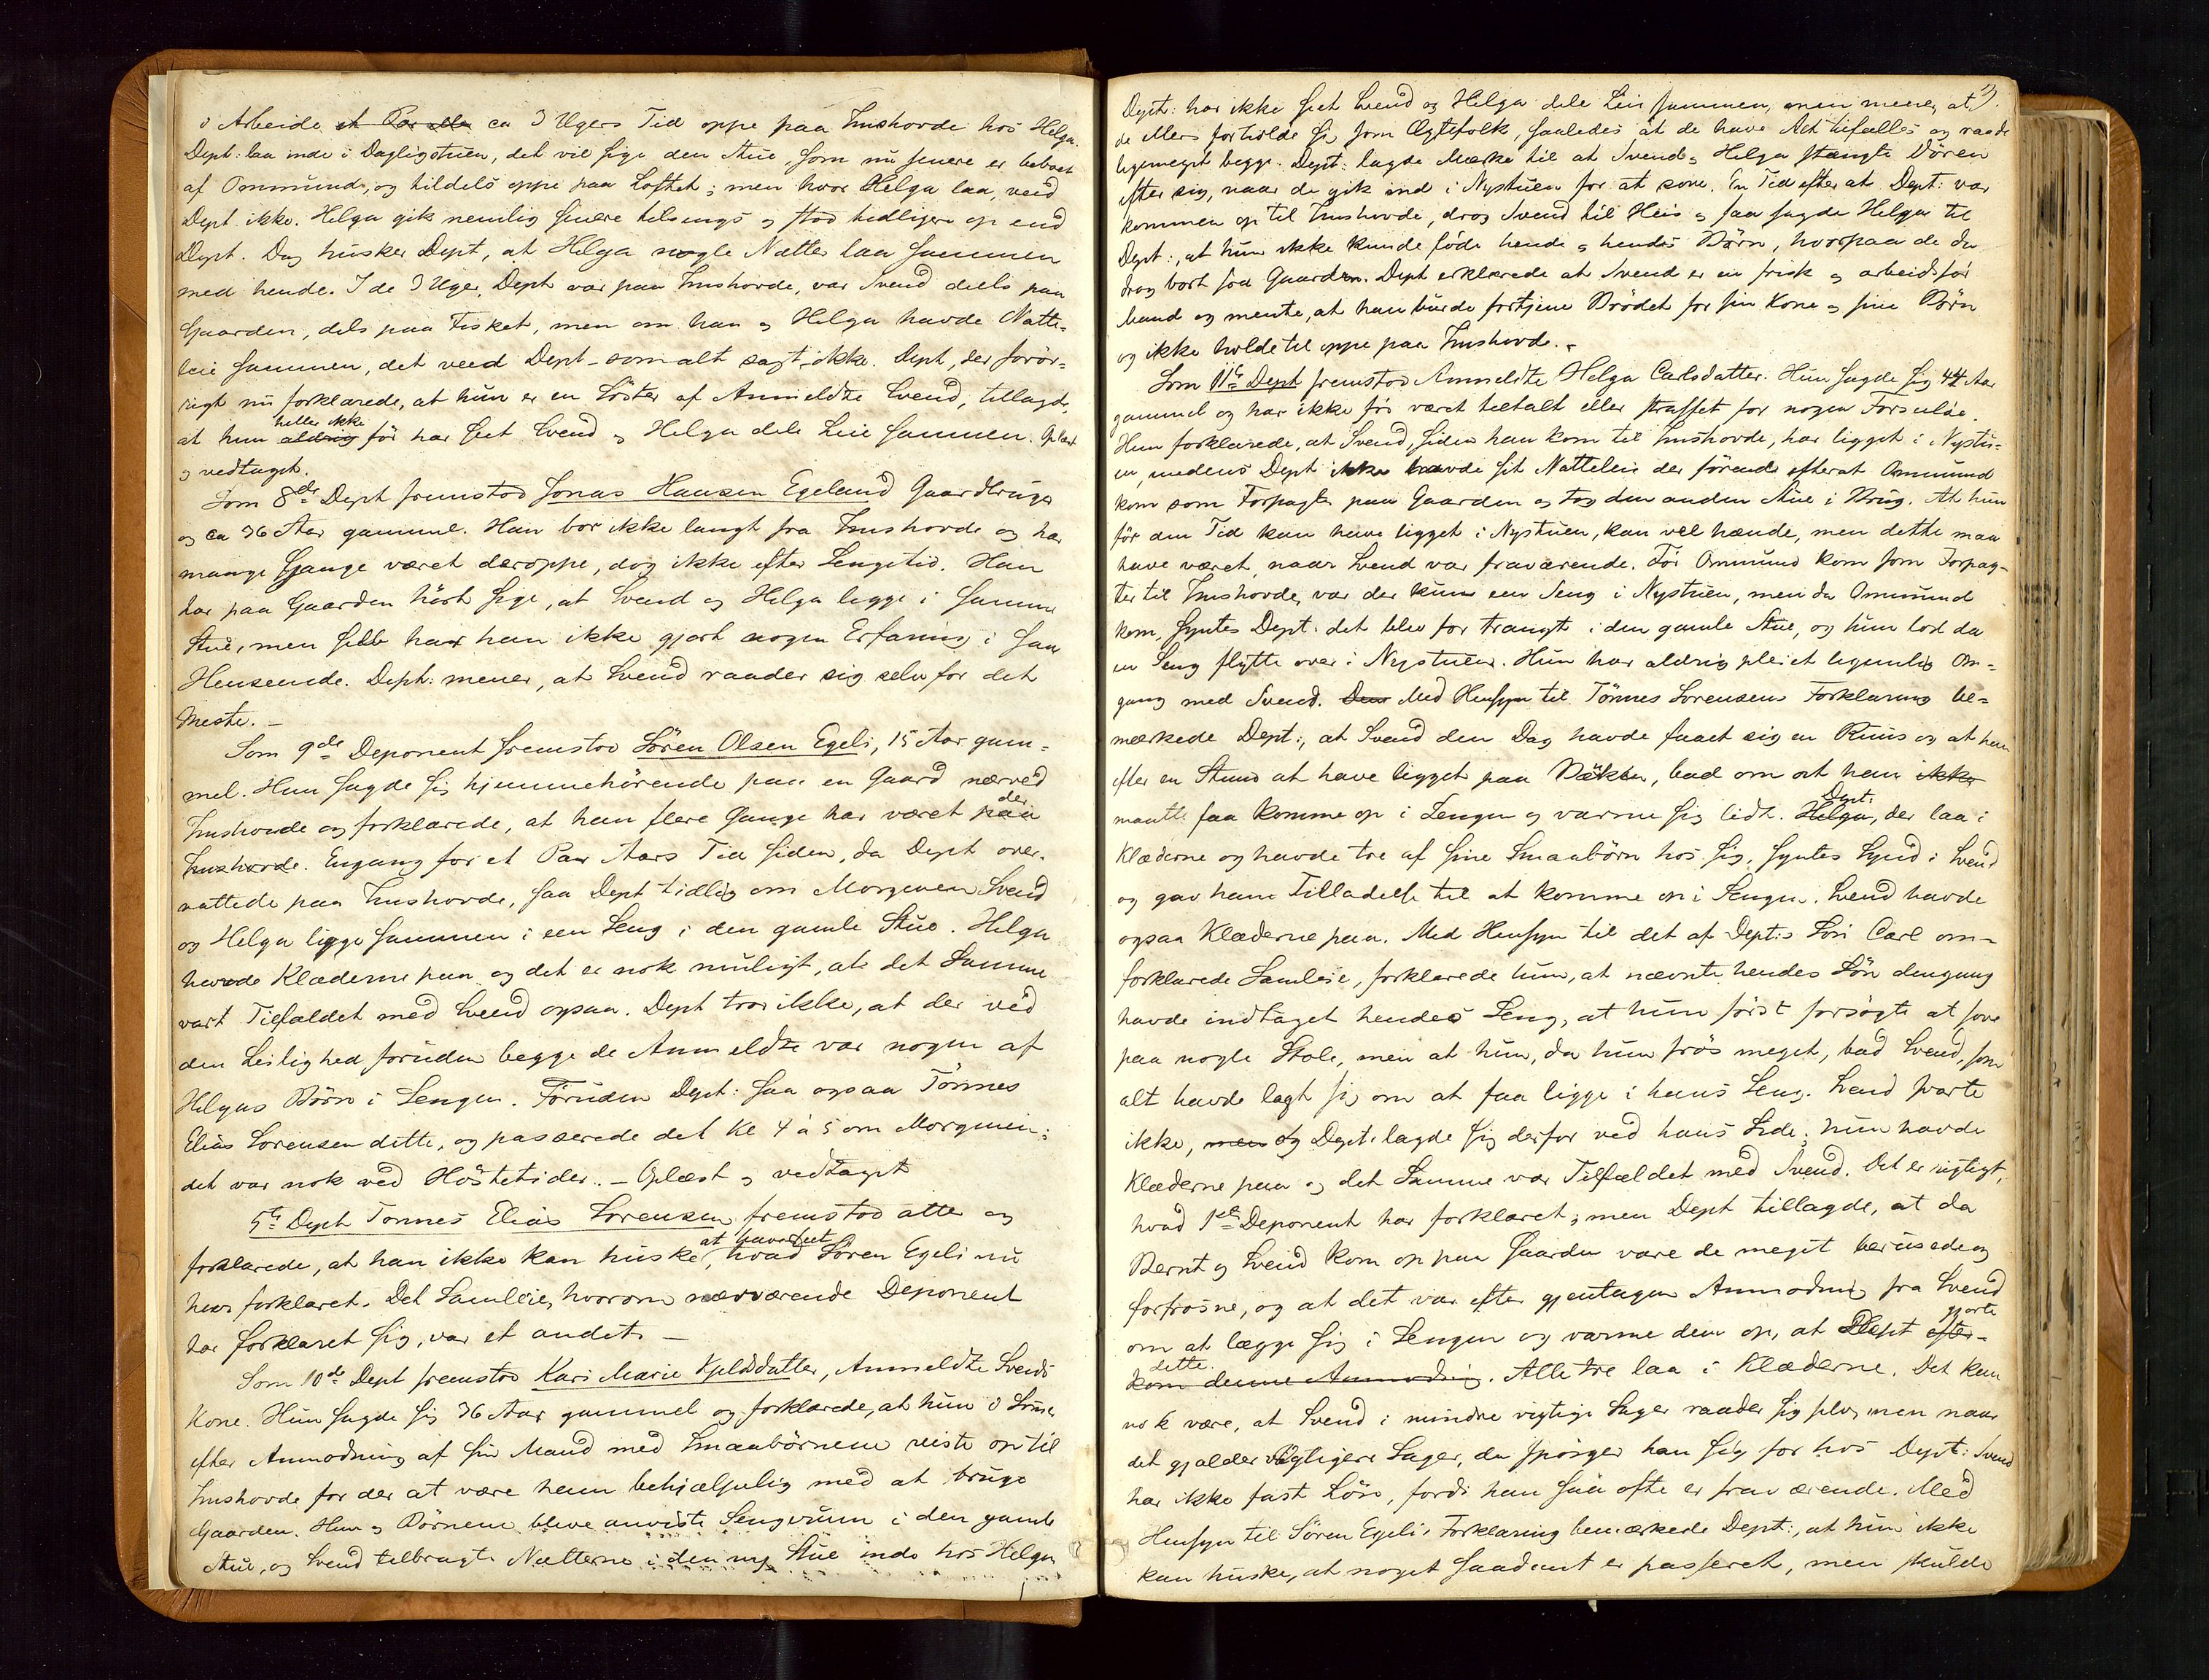 i Arbeide et Par eller ca 3 Ugers Tid oppe paa Imshovde hos Helga.
Dept: laa inde i Dagligstuen, det vil sige den Stue, som nu senere er beboet
af Ommund, og tildels oppe paa Loftet; men hvor Helga laa, veed
Dept ikke. Helga gik nemlig senere tilsengs og stod tidligere op end
Dept. Dog husker Dept, at Helga nogle Nætter laa sammen
med hende. I de 3 Uger, Dept var paa Imshovde, var Svend dels paa
Gaarden, dels paa Fisket, men om han og Helga havde Natte-
leie sammen, det veed Dept – som alt sagt – ikke. Dept, der forøv-
rigt nu forklarede, at hun er en Søster af Anmeldte Svend, tillagde,
at hun aldrig heller ikke før har seet Svend og Helga dele Leie sammen. Oplæst
og vedtaget.
Som 8de Dept fremstod Jonas Hansen Egeland Gaardbruger
og ca 36 Aar gammel. Han bor ikke langt fra Imshovde og har
mange Gange været deroppe, dog ikke efter Sengetid. Han
har paa Gaarden hørt sige, at Svend og Helga ligge i samme
Stue, men selv har han ikke gjort nogen Erfaring i saa
Henseende. Dept: mener, at Svend raader sig selv for det
meste. –
Som 9de Deponent fremstod Søren Olsen Egeli, 15 Aar gam-
mel. Han sagde sig hjemmehørende paa en Gaard nærved
Imshovde og forklarede, at han flere Gange har været paa der
Imshovde. Engang for et Par Aars Tid siden, da Dept over-
nattede paa Imshovde, saa Dept tidlig om Morgenen Svend
og Helga ligge sammen i een Seng i den gamle Stue. Helga
havde Klæderne paa og det er nok muligt, at det Samme
vart Tilfældet med Svend ogsaa. Dept tror ikke, at der ved
den Leilighed foruden begge de Anmeldte var nogen af
Helgas Børn i Sengen. Foruden Dept: saa ogsaa Tønnes
Elias Sørensen dette, og passerede det Kl 4 à 5 om Morgenen;
det var nok ved Høstetider. – Oplæst og vedtaget
5te Dept Tonnes Elias Sorensen fremstod atter og
forklarede, at han ikke kan huske, at have seet hvad Søren Egeli nu
har forklaret. Det Samleie, hvorom nærværende Deponent
har forklaret sig, var et andet. –
Som 10de Dept fremstod Kari Marie Kjeldsdatter, Anmeldte Svends
Kone. Hun sagde sig 36 Aar gammel og forklarede, at hun i
efter Anmodning af sin Mand med Smaabørnene reiste op til
Imshovde for der at være ham behjælpelig med at bruge
Gaarden. Hun og Børnene bleve anviste Sengerum i den gamle
Stue, og Svend tilbragte Nætterne i den ny Stue inde hos Helga
Dept: har ikke seet Svend og Helga dele Leie sammen, men mener, at
de ellers forholde sig som Ægtefolk, saaledes at de have Alt tilfælles og raade
ligemeget begge. Dept: lagde Mærke til at Svend og Helga stængte Døren
efter sig, naar de gik ind i Nystuen for at sove. En Tid efter at Dept: var
kommen op til Imshovde, drog Svend til Heis og saa sagde Helga til
Dept:, at hun ikke kunde føde hende og hendes Børn, hvorpaa de da
drog bort fra Gaarden. Dept erklærede at Svend er en frisk og arbeidsfør
Mand og mente, at han burde fortjene Brødet for sin Kone og sine Børn
og ikke holde til oppe paa Imshovde. –
Som 11te Dept fremstod Anmeldte Helga Carlsdatter. Hun sagde sig 44 Aar
gammel og har ikke før været tiltalt eller straffet for nogen Forseelse.
Hun forklarede, at Svend, siden han kom til Imshovde, har ligget i Nystu-
en, medens Dept ikke havde sit Natteleie der førend efterat Ommund
kom som Forpagter paa Gaarden og tog den anden Stue i Brug. At hun
før den Tid kan have ligget i Nystuen, kan vel hænde, men dette maa
have været, naar Svend var fraværende. Før Ommund kom som Forpag-
ter til Imshovde, var der kun een Seng i Nystuen, men da Ommund
kom, syntes Dept: det blev for trangt i den gamle Stue, og hun lod da
en Seng flytte over i Nystuen. Hun har aldrig pleiet legemlig Om-
gang med Svend. Den Med Hensyn til Tönnes Sorensens Forklaring be-
mærkede Dept:, at Svend den Dag havde faaet sig en Ruus og at han
efter en Stund at have ligget paa Bænken, bad om at han ikke
maatte faa komme op i Sengen og varme sig lidt. Helga, Dept: der laa i
Klæderne og havde tre af sine Smaabørn hos sig, syntes Synd i Svend
og gav ham Tilladelse til at komme op i Sengen. Svend havde
ogsaa Klæderne paa. Med Hensyn til det af Dept:s Søn Carl om-
forklarede Samleie, forklarede hun, at nævnte hendes Søn dengang
havde indtaget hendes Seng, at hun først forsøgte at sove
paa nogle Stole, men at hun, da hun frøs meget, bad Svend, som
alt havde lagt sig om at faa ligge i hans Seng. Svend svarte
ikke, men og Dept: lagde sig derfor ved hans Side; hun havde
Klæderne paa og det Samme var Tilfældet med Svend. Det er rigtigt,
hvad 1ste Deponent har forklaret; men Dept tillagde, at da
Bernt og Svend kom op paa Gaarden vare de meget berusede og
forfrosne, og at det var efter gjentagen Anmodning fra Svend
om at lægge sig i Sengen og varme dem op, at Dept efter- gjorte
kom denne Anmodning dette. Alle tre laa i Klæderne. Det kan
nok være, at Svend i mindre vigtige Sager raader sig selv, men naar
det gjælder vigtigere Sager, da spørger han sig for hos Dept: Svend
har ikke fast Løn, fordi han saa ofte er fraværende. Med
Hensyn til Søren Egelis Forklaring bemærkede Dept:, at hun ikke
kan huske, at noget saadant er passeret, men skulde